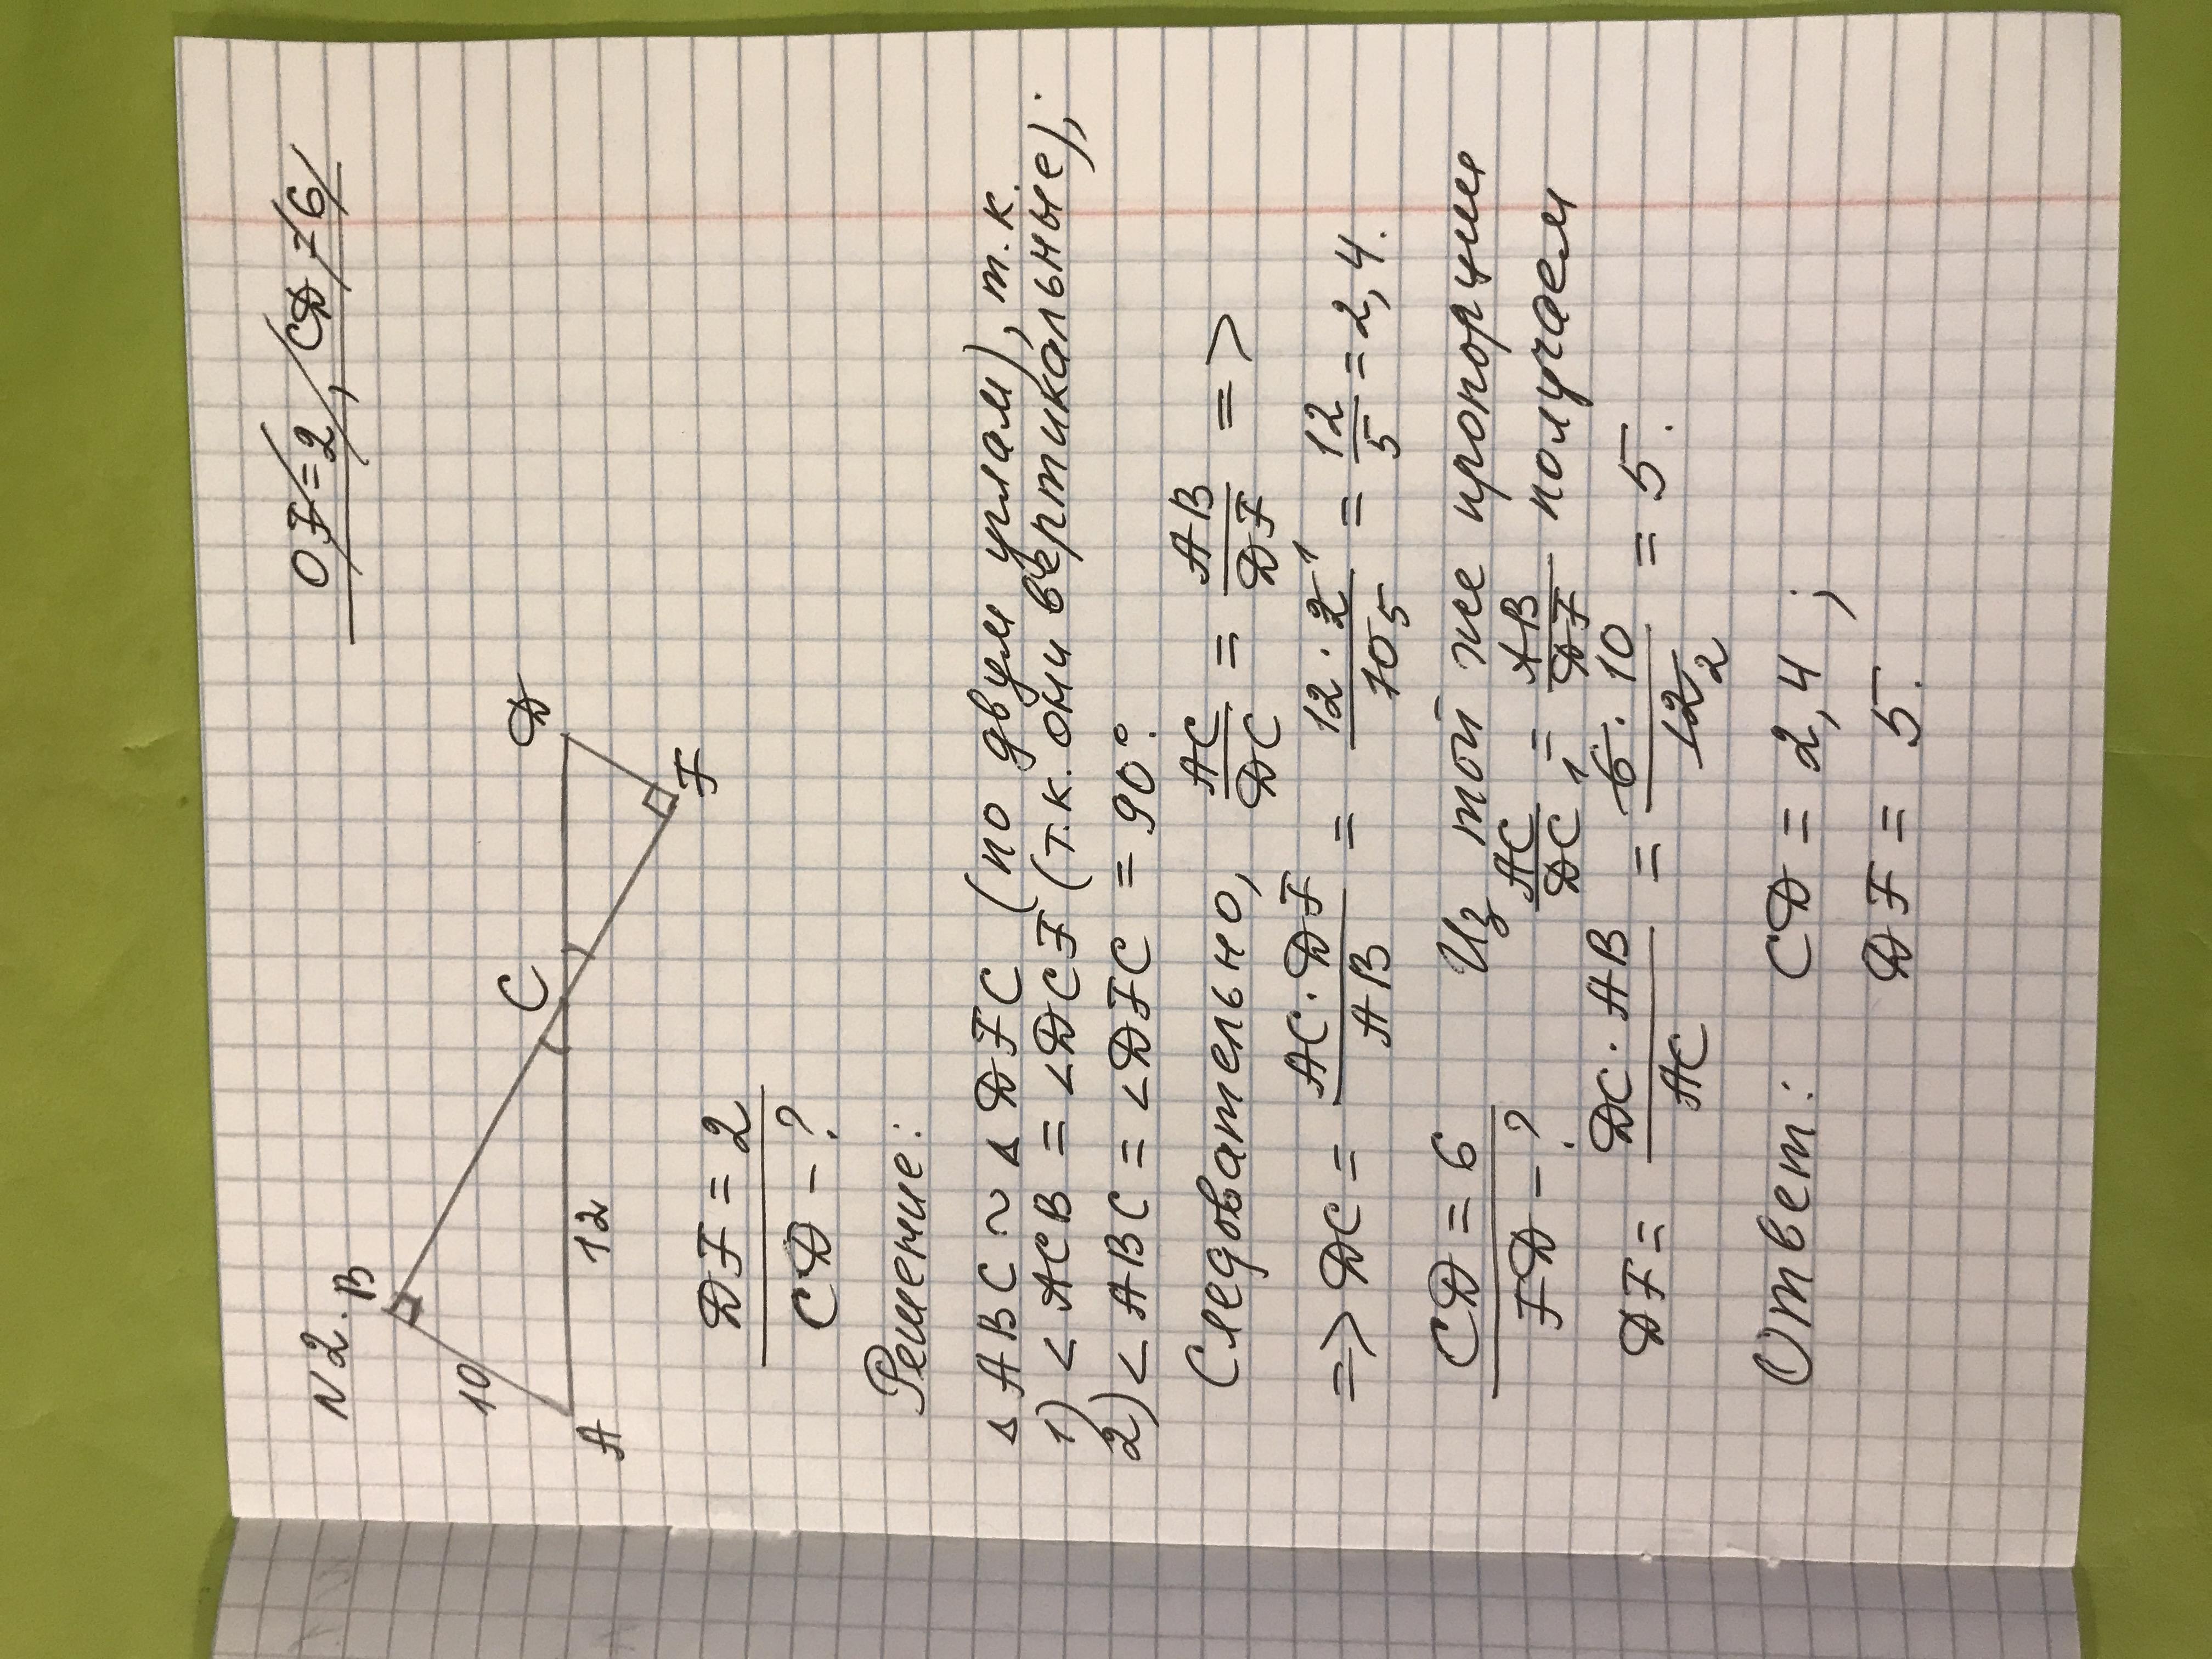 N 2.
B
10
A
12
C
D
F
DF = 2, CD = 6
DF = 2
CD - ?
Решение:
Δ ABC ~ Δ DFC (по двум углам), т.к.
1) ∠ ACB = ∠DCF (т.к. они вертикальные);
2) ∠ ABC = ∠DFC = 90°.
Следовательно, AC/DC = AB/DF =>
=> DC = AC·DF/AB = 12·2/10 = 12/5 = 2,4.
1
5
CD = 6
FD - ?
Из той же пропорции
AC/DC = AB/DF получаем
DF = DC·AB/AC = 6·10/12 = 5.
1
2
Ответ: CD = 2,4 ;
DF = 5.